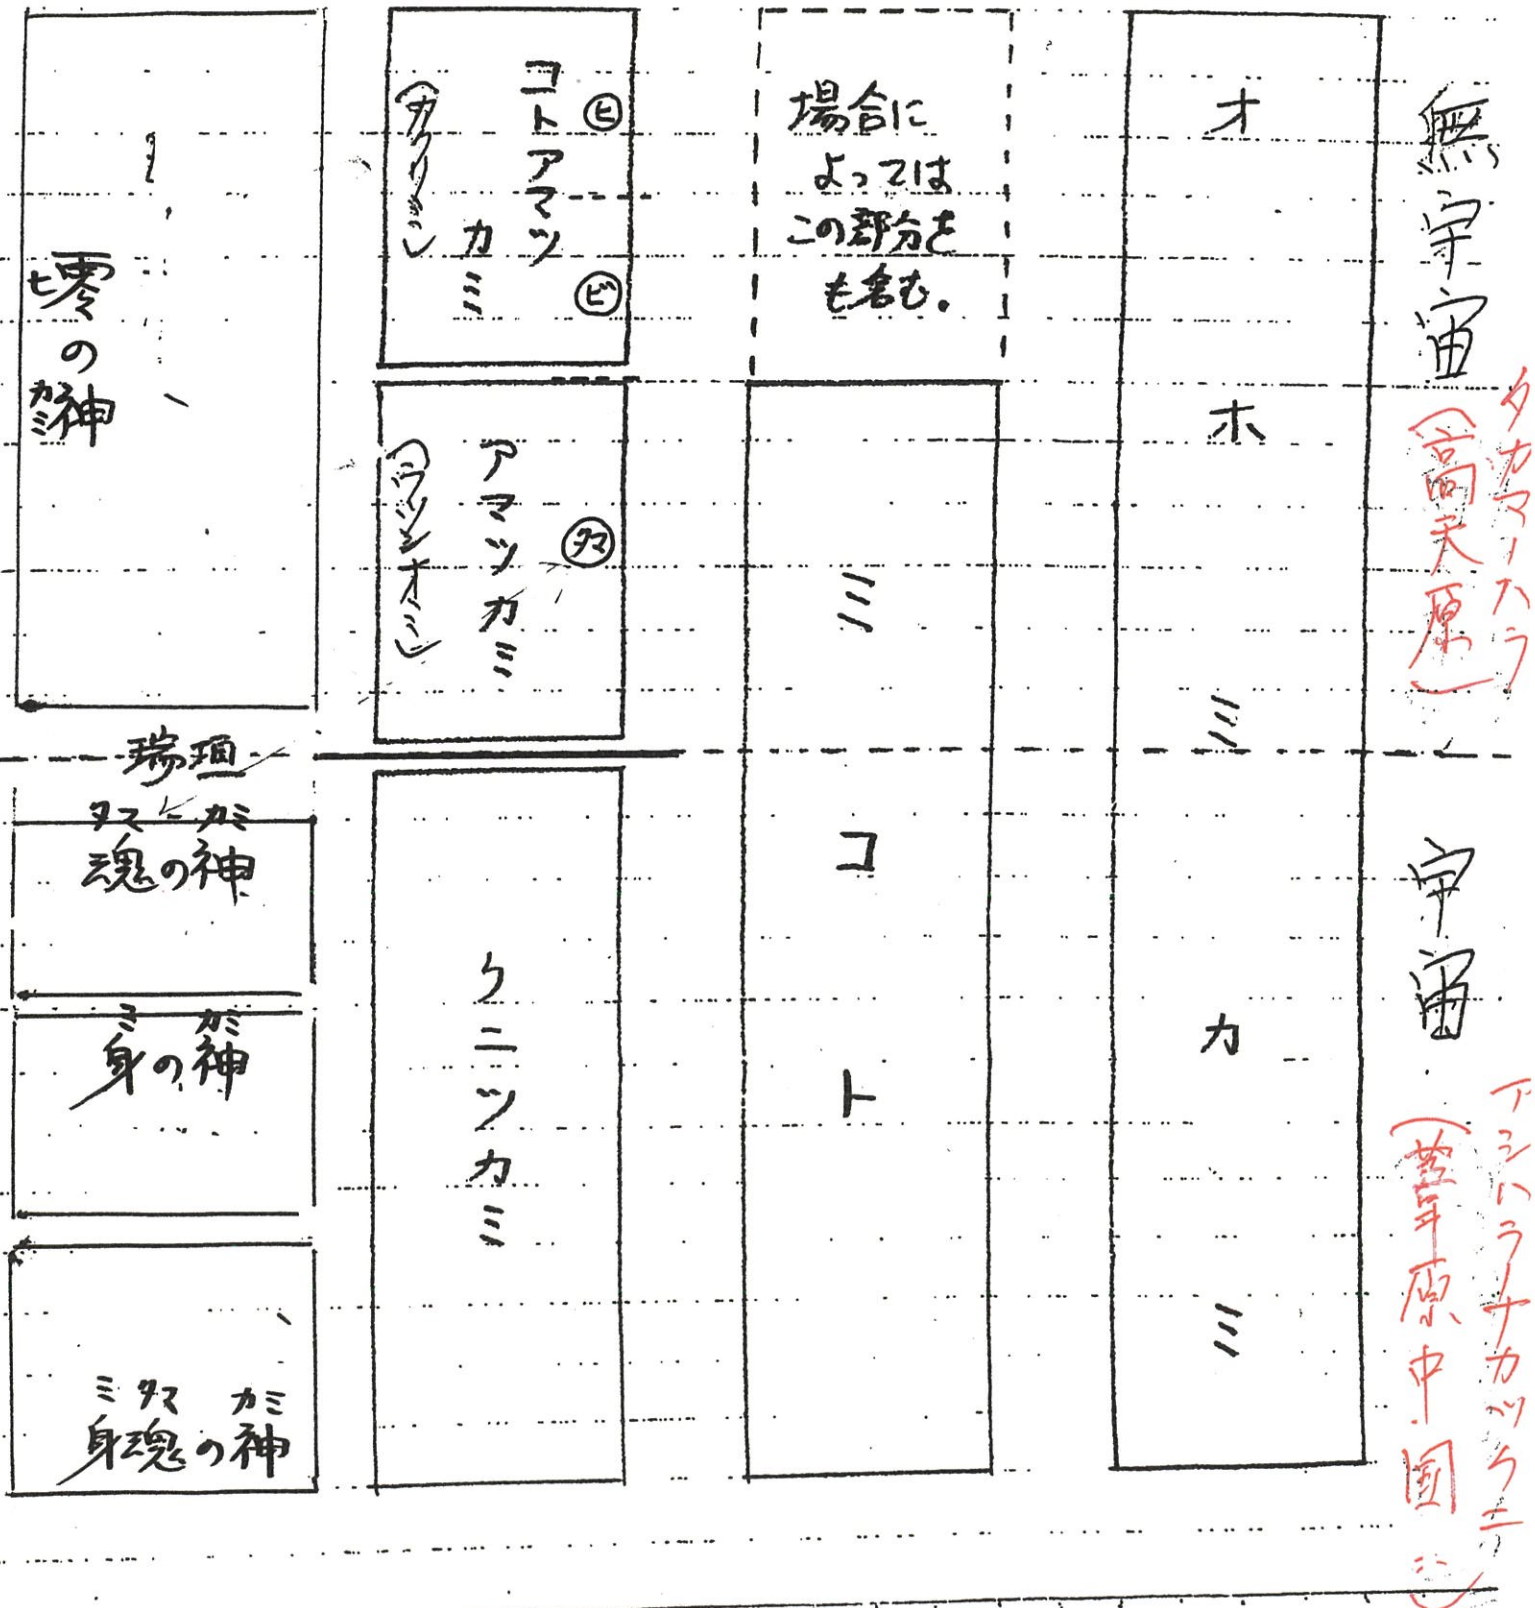 無宇宙
タカマノハラ
（高天原）
宇宙
アシハラノナカツクニ
（葦原中国）
オホミカミ
場合に
よっては
この部分を
も含む。
ミコト
ヒ
ビ
コトアマツ
カミ
タマ
アマツカミ
クニツカミ
ヒ
零の神
カミ
瑞垣
タマノカミ
魂の神
ミ カミ
身の神
ミタマ カミ
身魂の神